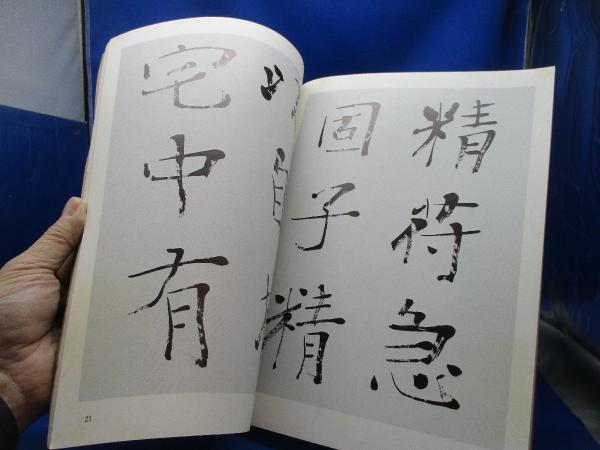 精符急
固子精
宅中有
21